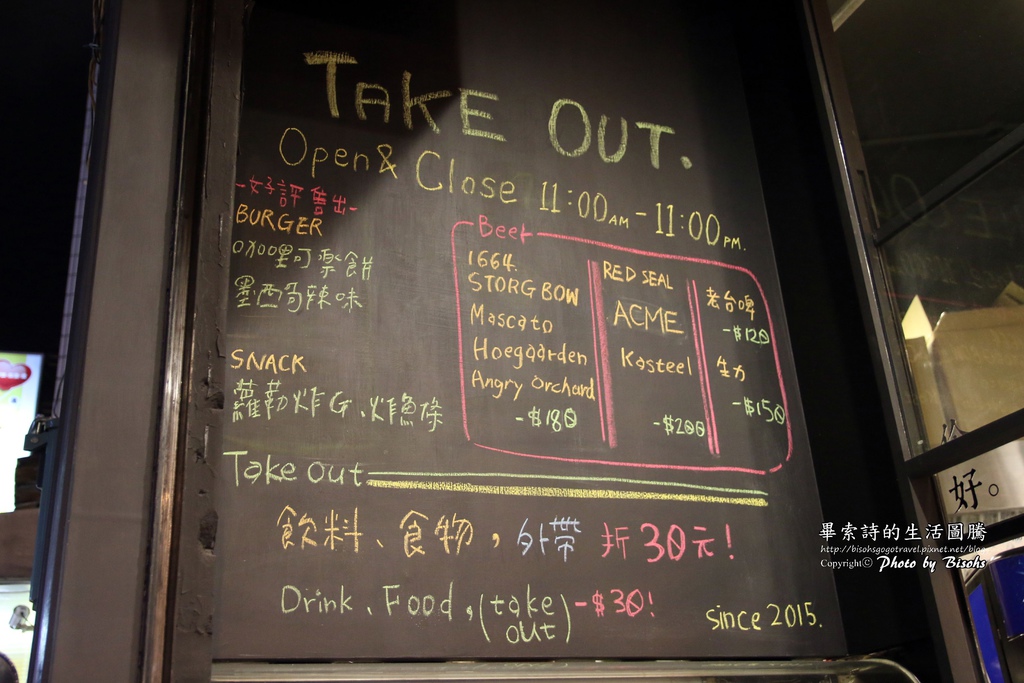 TAKE OUT.
Open & Close 11:00 AM - 11:00 PM.
-好評售出-
BURGER
咖哩可樂餅
墨西哥辣味
SNACK
蘿勒炸G、炸魚條
Beer
1664.
STORGBOW
Mascato
Hoegaarden
Angry orchard
-$180
RED SEAL
ACME
Kasteel
-$200
老台啤
-$120
生力
-$150
Take out
飲料、食物，外帶 折30元!
Drink、Food,(take out)-$30!
since 2015.
好。
畢索詩的生活圖騰
http://bisohsgogotravel.pixnet.net/blog
Copyright© Photo by Bisohs